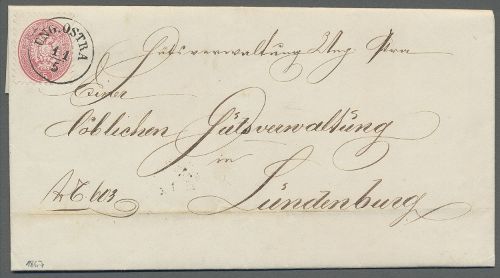 UNG. OSTRA
11
5
Gutsverwaltung Ung. Ostra
Einer
Löblichen Gutsverwaltung
in
Lundenburg
1867